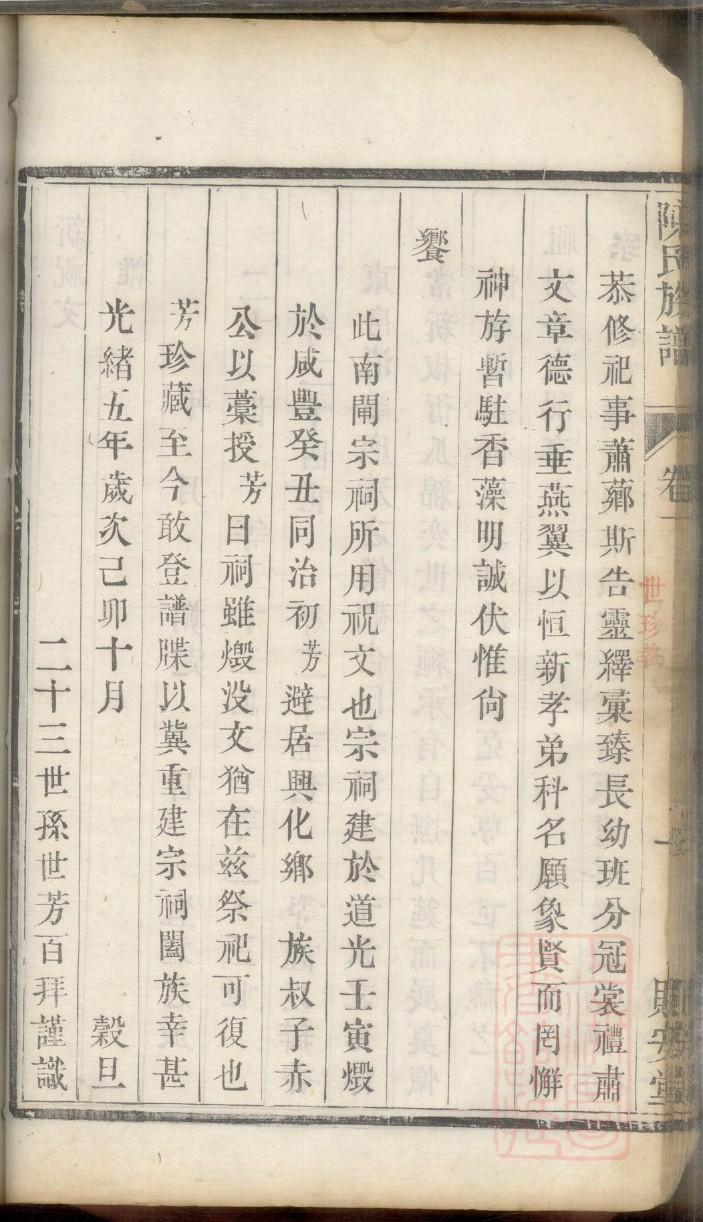 陳氏族譜 卷一
世珍執
貽安堂
恭修祀事蕭薌斯告靈繹彙臻長幼班分冠裳禮肅
文章德行垂燕翼以恒新孝弟科名願象賢而罔懈
神斿暫駐香藻明誠伏惟尙
饗
此南閘宗祠所用祝文也宗祠建於道光壬寅燬
於咸豐癸丑同治初芳避居興化鄉 族叔子赤
公以藁授芳曰祠雖燬没文猶在兹祭祀可復也
芳珍藏至今敢登譜牒以冀重建宗祠闔族幸甚
光緒五年歲次己卯十月 穀旦
二十三世孫世芳百拜謹識